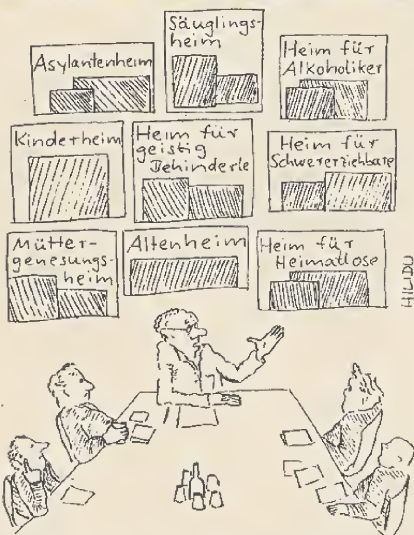 Asylantenheim
Säuglings-
heim
Heim für
Alkoholiker
Kinderheim
Heim für
geistig
Behinderte
Heim für
Schwererziehbare
Mütter-
genesungs-
heim
Altenheim
Heim für
Heimatlose
HILIDU